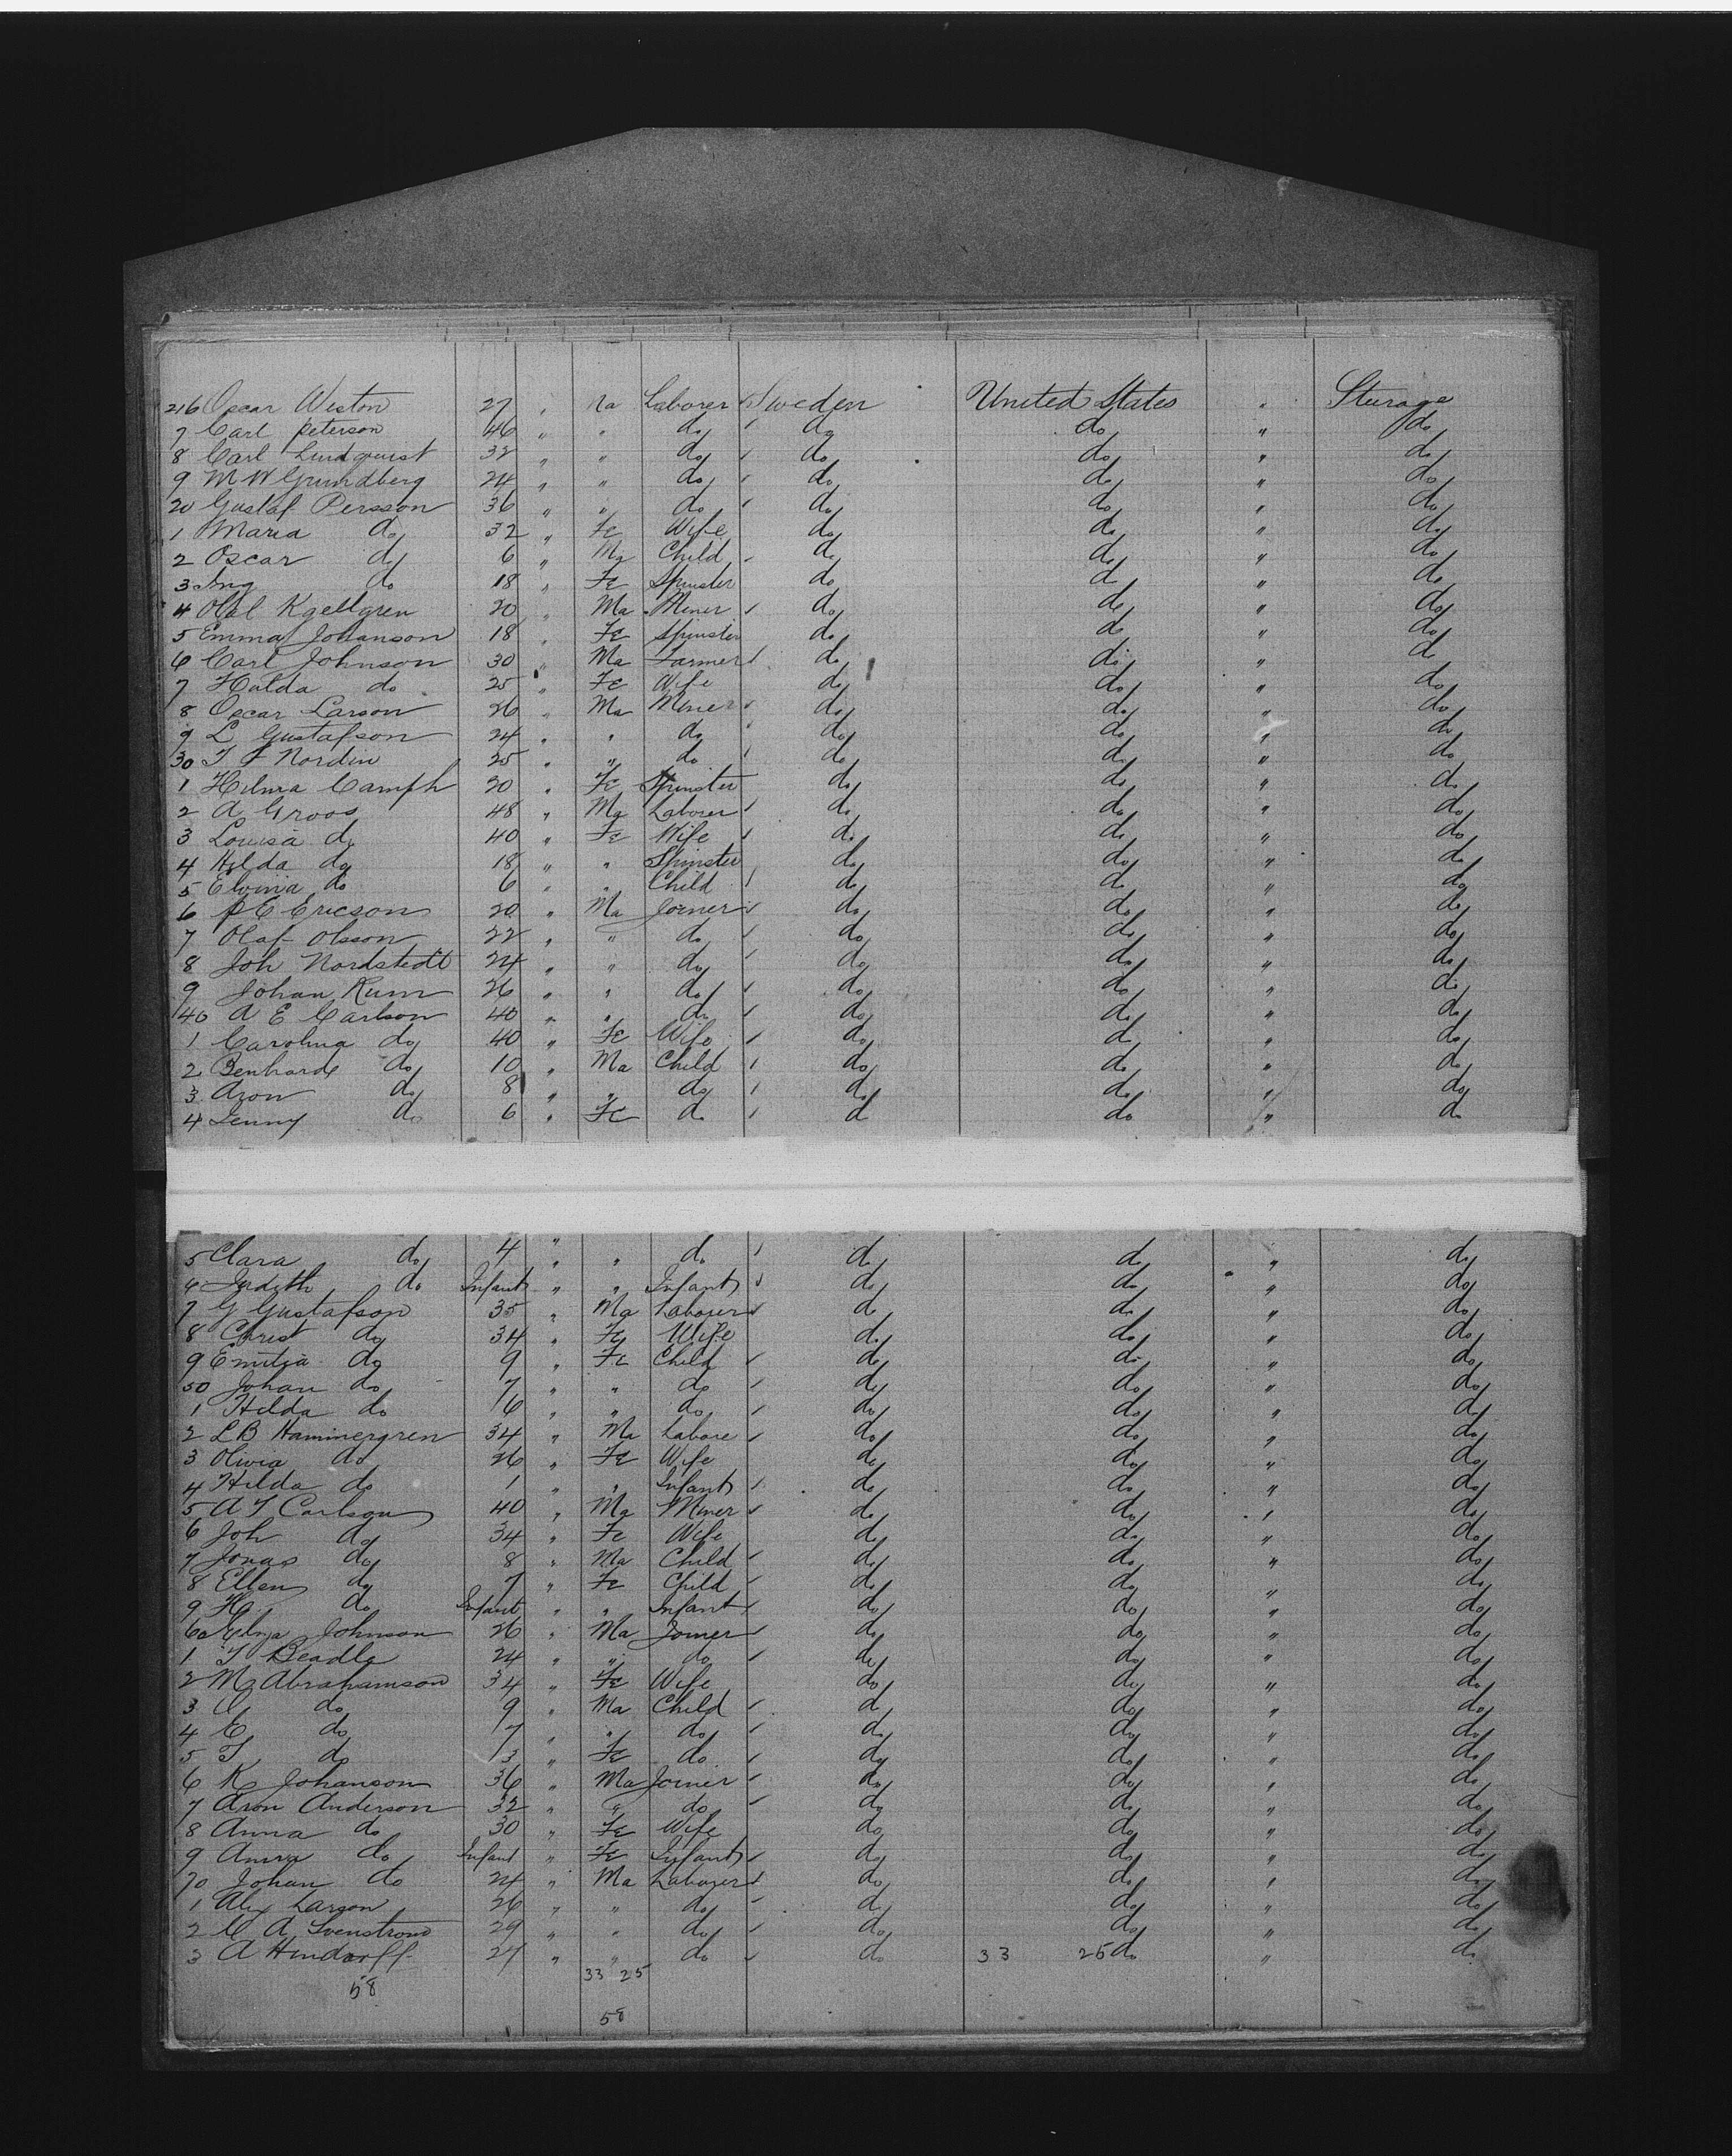 216 Oscar Weston 27 " Ma Laborer Sweden United States " Sturage
7 Carl Peterson 46 " " do do do " do
8 Carl Lindquist 32 " " do do do " do
9 M W Grundberg 24 " " do do do " do
20 Gustaf Persson 36 " " do do do " do
1 Maria do 32 " Fe Wife do do " do
2 Oscar do 6 " Ma Child do do " do
3 Ing do 18 " Fe Spinster do do " do
4 Olof Kgellgren 20 " Ma Miner do do " do
5 Emma Johanson 18 " Fe Spinster do do " do
6 Carl Johnson 30 " Ma Farmer do do " do
7 Hulda do 25 " Fe Wife do do " do
8 Oscar Larson 26 " Ma Miner do do " do
9 L Gustafson 24 " " do do do " do
30 T F Nordin 25 " " do do do " do
1 Hilma Camph 20 " Fe Spinster do do " do
2 A Groos 48 " Ma Laborer do do " do
3 Louisa do 40 " Fe Wife do do " do
4 Hilda do 18 " " Spinster do do " do
5 Elvina do 6 " " Child do do " do
6 P E Ericson 20 " Ma Joiner do do " do
7 Olaf Olsson 22 " " do do do " do
8 Joh Nordstedt 24 " " do do do " do
9 Johan Rum 26 " " do do do " do
40 A E Carlson 40 " " do do do " do
1 Carolina do 40 " Fe Wife do do " do
2 Benhard do 10 " Ma Child do do " do
3 Aron do 8 " " do do do " do
4 Jenny do 6 " Fe do do do " do
5 Clara do 4 " " do do do " do
6 Judith do Infant " " Infant do do " do
7 G Gustafson 35 " Ma Laborer do do " do
8 Christ do 34 " Fe Wife do do " do
9 Emilia do 9 " Fe Child do do " do
50 Johan do 7 " " do do do " do
1 Hilda do 6 " " do do do " do
2 L B Hammergren 34 " Ma Labore do do " do
3 Olivia do 26 " Fe Wife do do " do
4 Hilda do 1 " " Infant do do " do
5 A T Carlson 40 " Ma Miner do do " do
6 Joh do 34 " Fe Wife do do " do
7 Jonas do 8 " Ma Child do do " do
8 Ellen do 7 " Fe Child do do " do
9 H do Infant " " Infant do do " do
60 Johnson 26 " Ma Joiner do do " do
1 T Beadle 24 " " do do do " do
2 M Abrahamson 34 " Fe Wife do do " do
3 do 9 " Ma Child do do " do
4 C do 7 " " do do do " do
5 T do 3 " Fe do do do " do
6 K Johanson 36 " Ma Joiner do do " do
7 Aron Anderson 32 " " do do do " do
8 Anna do 30 " Fe Wife do do " do
9 Anna do Infant " Fe Infant do do " do
70 Johan do 24 " Ma Laborer do do " do
1 Alex Larson 26 " " do do do " do
2 C A Svenstrom 29 " " do do do " do
3 A Hindorff 27 " " do do 33 25 do " do
33 25
58
58